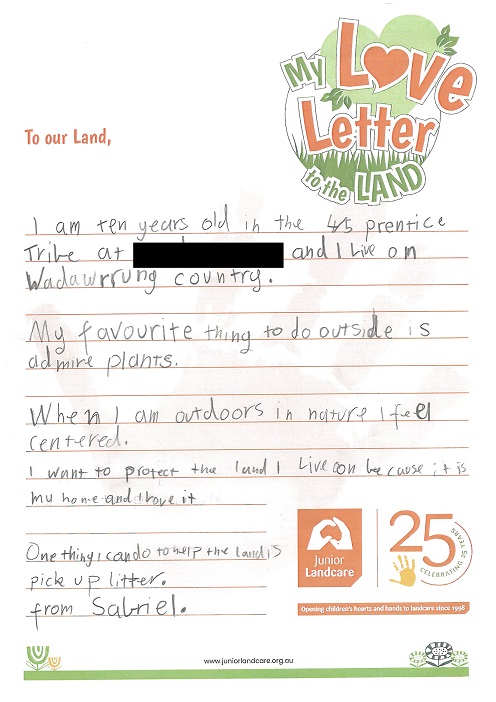 My Love
Letter
to the LAND
To our Land,
I am ten years old in the 4/5 prentice
Tribe at and I Live on
Wadawrrung country.
My favourite thing to do outside is
admire plants.
When I am outdoors in nature I feel
centered.
I want to protect the land I Live on because it is
my home and I love it
One thing i can do to help the land is
pick up litter.
from Sabriel.
Junior
Landcare
25
CELEBRATING 25 YEARS
Opening children's hearts and hands to landcare since 1998
www.juniorlandcare.org.au